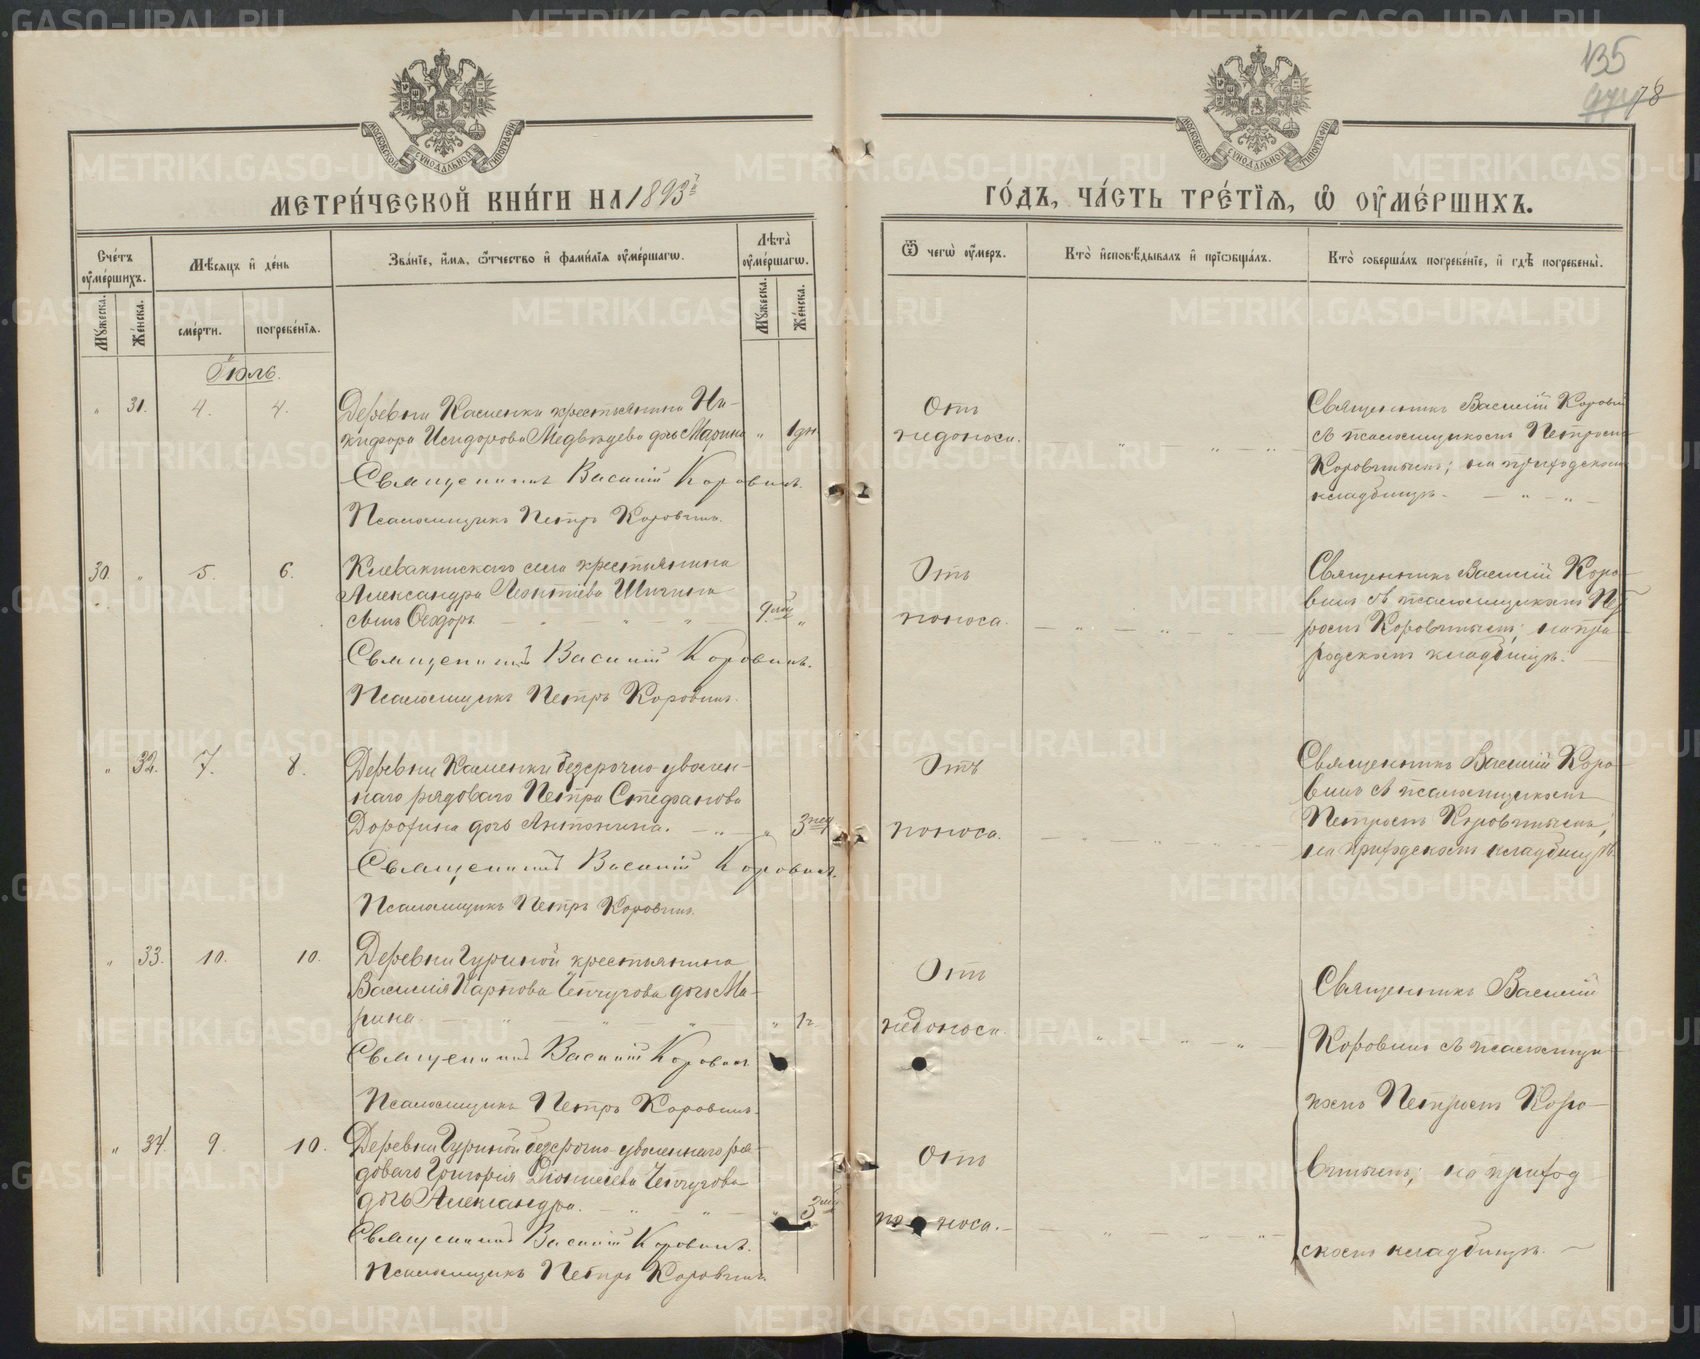 METRIKI.GASO-URAL.RU
135
78
МОСКОВСКОЙ СѴНОДАЛЬНОЙ ТИПОГРАФІИ
МОСКОВСКОЙ СѴНОДАЛЬНОЙ ТИПОГРАФІИ
МЕТРИ́ЧЕСКОЙ КНИ́ГИ НА 1893й
ГО́ДЪ, ЧА́СТЬ ТРЕ́ТЇѦ, Ѡ҆ ОУ҆МЕ́РШИХЪ.
Сче́тъ оу҆ме́ршихъ.
Мꙋ́жеска.
Же́нска.
Мѣ́сяцъ и҆ де́нь
сме́рти.
погребе́нїѧ.
Зва́нїе, и҆́мѧ, ѻ҆́тчество и҆ фами́лїѧ оу҆ме́ршагѡ.
Лѣта̀ оу҆ме́ршагѡ.
Мꙋ́жеска.
Же́нска.
Ѿ чегѡ̀ оу҆́меръ.
Кто̀ и҆сповѣ́дывалъ и҆ прїѡбща́лъ.
Кто̀ соверша́лъ погребе́нїе, и҆ гдѣ̀ погребены̀.
Іюль.
" 31. 4. 4.
Деревни Каменки крестьянина Ни-
кифора Исидорова Медвѣдева дочь Марина " 1 дн
Священникъ Василій Коровинъ.
Псаломщикъ Петръ Коровинъ.
Отъ
недоноса.
Священникъ Василій Коровин
съ псаломщикомъ Петромъ
Коровинымъ; на приходскомъ
кладбищѣ.
30. " 5. 6.
Клевакинскаго села крестьянина
Александра Леонтіева Шичина
сынъ Ѳеодоръ 9 мѣс "
Священникъ Василій Коровинъ.
Псаломщикъ Петръ Коровинъ.
Отъ
поноса.
Священникъ Василій Коро-
винъ съ псаломщикомъ Пет-
ромъ Коровинымъ; на при-
ходскомъ кладбищѣ.
" 32. 7. 8.
Деревни Каменки безсрочно-уволен-
наго рядоваго Петра Стефанова
Дорофина дочь Антонина. " 3 нед
Священникъ Василій Коровинъ.
Псаломщикъ Петръ Коровинъ.
Отъ
поноса.
Священникъ Василій Коро-
винъ съ псаломщикомъ
Петромъ Коровинымъ;
на приходскомъ кладбищѣ.
" 33. 10. 10.
Деревни Гуриной крестьянина
Василія Карпова Чепчугова дочь Ма-
рина. " 1 ч
Священникъ Василій Коровинъ
Псаломщикъ Петръ Коровинъ.
Отъ
недоноса.
Священникъ Василій
Коровинъ съ псаломщи-
комъ Петромъ Коро-
винымъ; на приход
скомъ кладбищѣ.
" 34. 9. 10.
Деревни Гуриной безсрочно-уволеннаго ря-
доваго Григорія Діонисіева Чепчугова
дочь Александра. " 3 мѣс
Священникъ Василій Коровинъ.
Псаломщикъ Петръ Коровинъ.
Отъ
поноса.